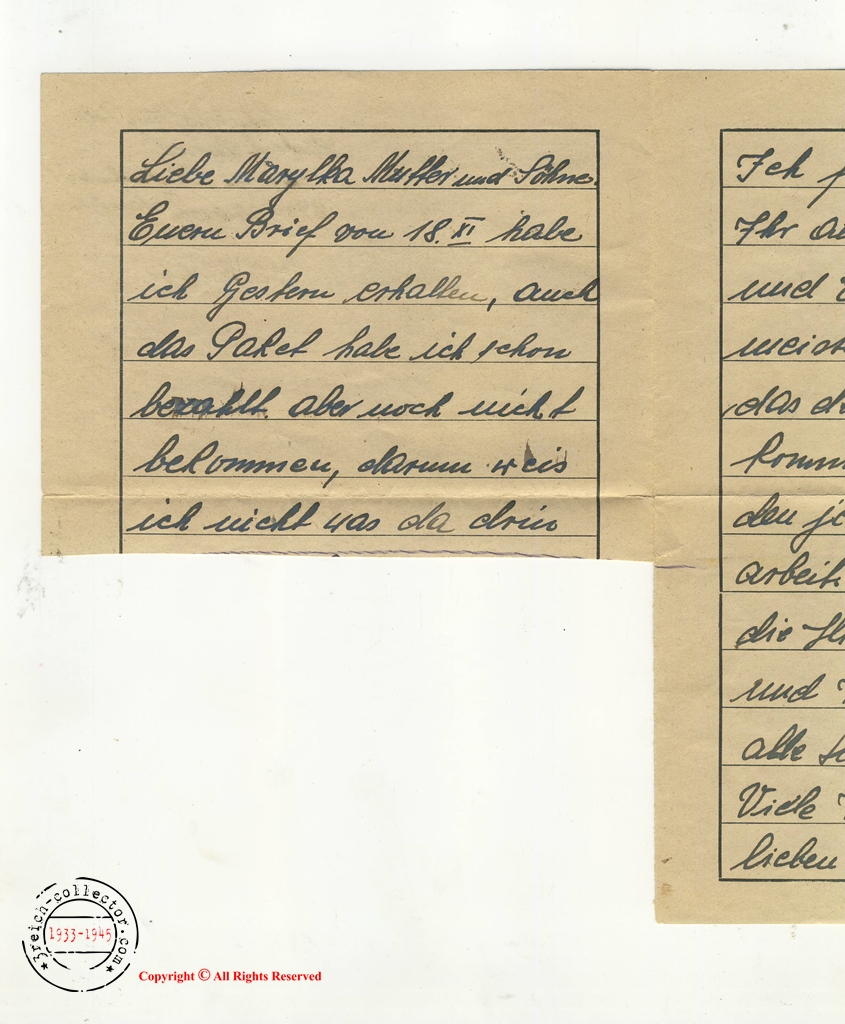 Liebe Marylka Mutter und Söhne.
Euern Brief von 18. XI habe
ich Gestern erhalten, auch
das Paket habe ich schon
bezahlt. aber noch nicht
bekommen, darum weis
ich nicht was da drin
Ich
Ihr
und
das
den
die
und
alle
Viele
lieben
3reich-collector.com
1933-1945
Copyright © All Rights Reserved